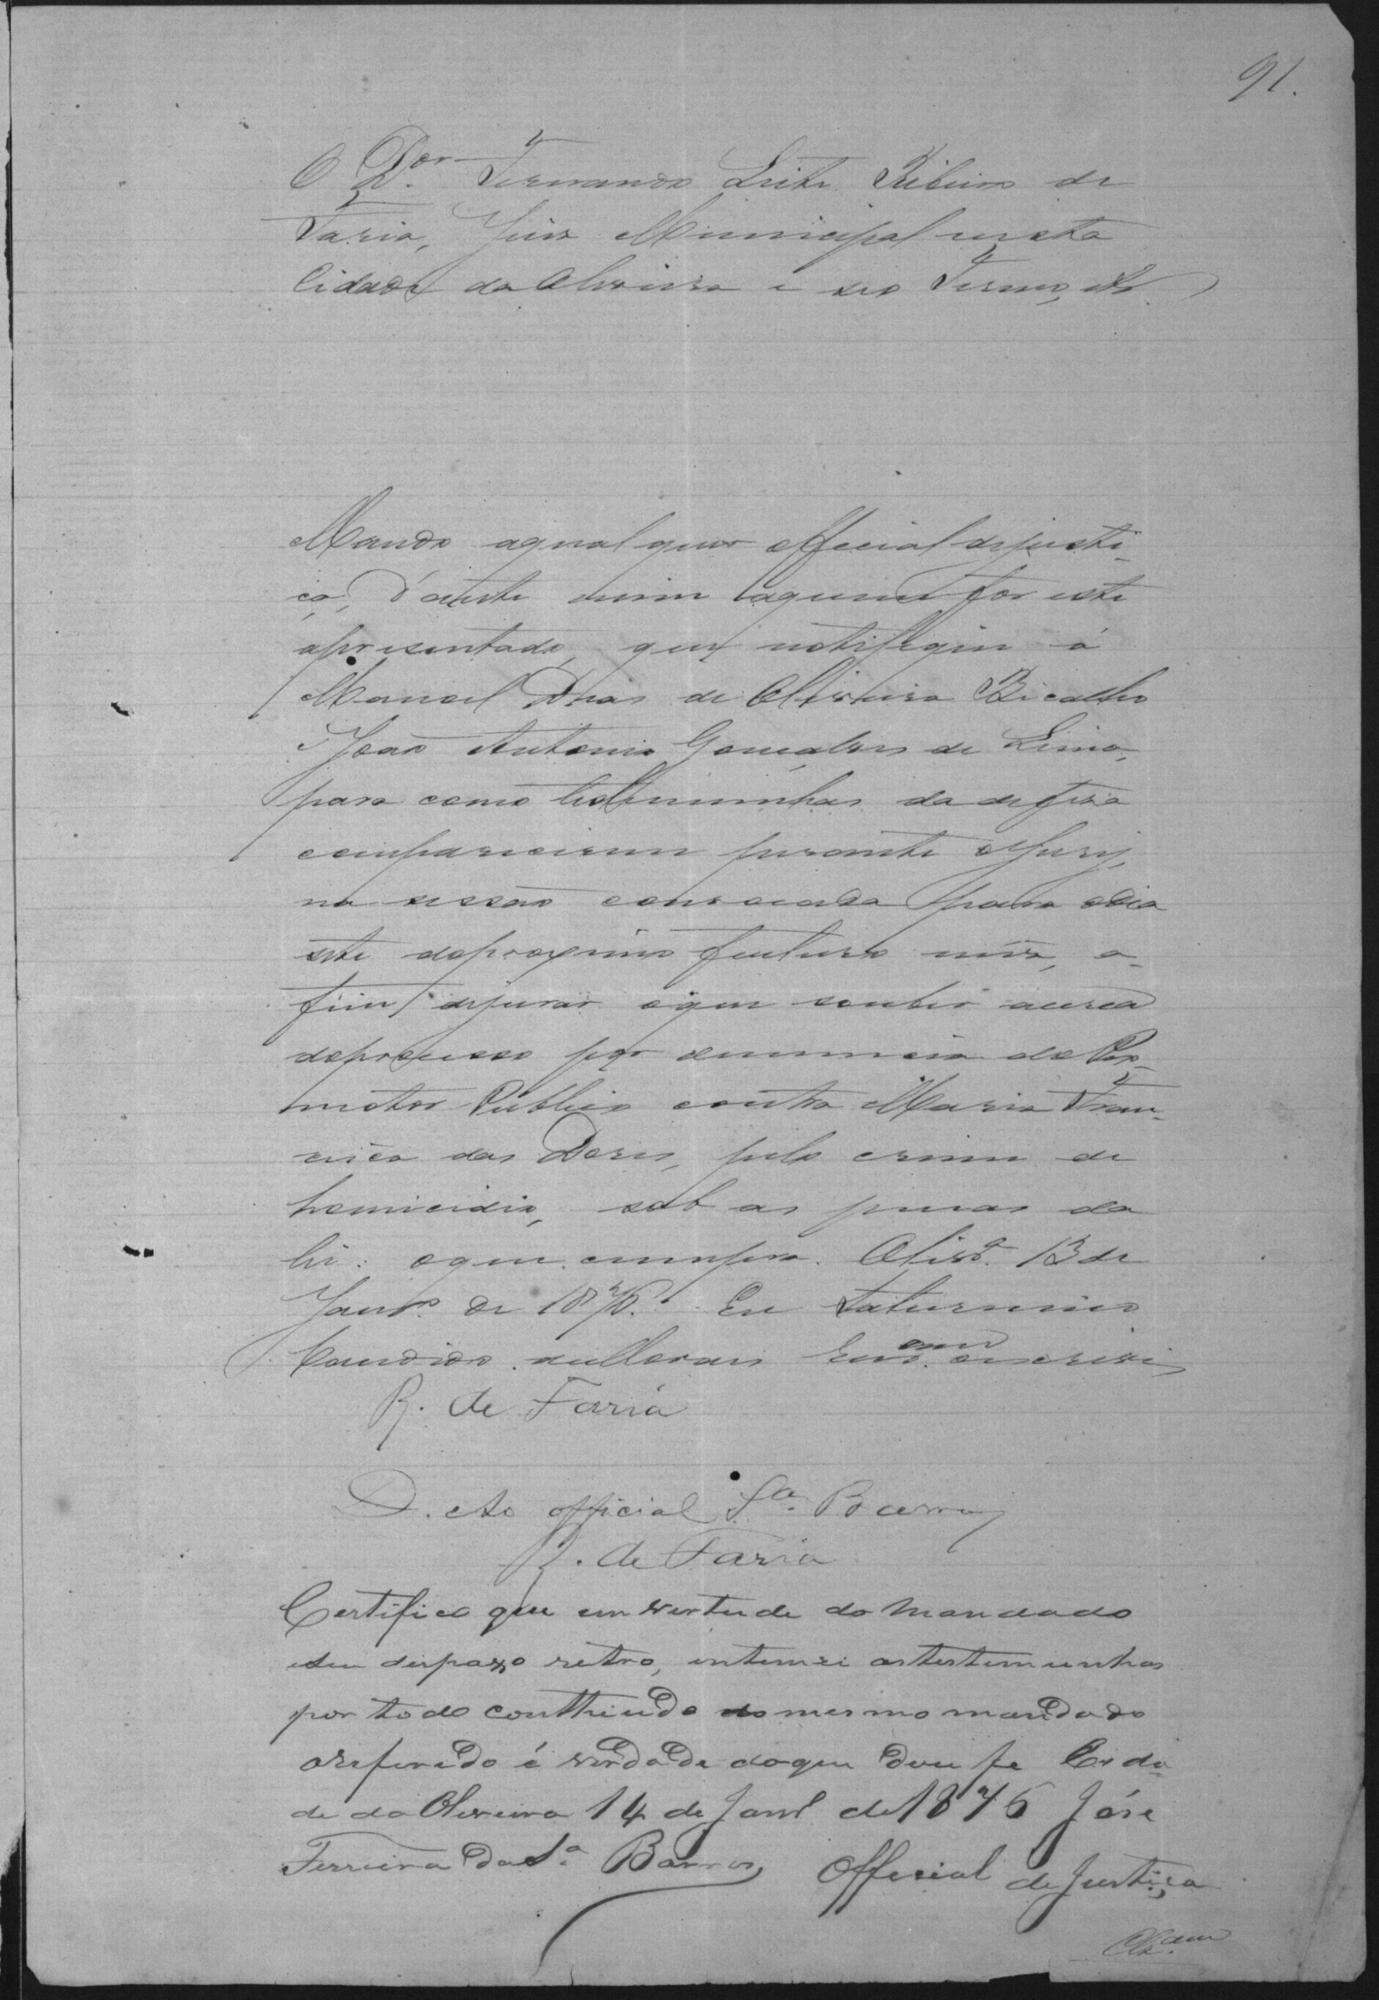 91.
O Dor. Fernando Leite Ribeiro de
Faria, Juiz Municipal nesta
Cidade da Oliveira e seo Termo, etc.
Mando aqualquer official dejusti-
ça, d'ante mim aquem for este
apresentado, que notifique á
Manoel Dias de Oliveira Bicalho
João Antonio Gonçalves de Lima,
para como testiminhas da defeza
comparecerem perante o Jury,
na sessão convocada para odia
sete deproximo futuro mez, a-
fim dejurar oque souber acerca
doprocesso por denuncia do Pro-
motor Publico contra Maria Fran-
cisca das Dores, pelo crime de
homicidio, sob as penas da
lei: oque cumpra. Olivra. 13 de
Janro. de 1876. Eu Saturnino
Candido deMoraes Escam. oescrevi
R. de Faria
D. Ao official Sa. Barros
R. de Faria
Certifico que emvertude do mandado
eseu despaxo retro, intemei astestemunhas
por todo conthiudo do mesmo mandado
oreferido é verdade doque dou fe Cida-
de da Oliveira 14 de Janro de 1876 Jóse
Ferreira da Sa. Barros Official de Justiça